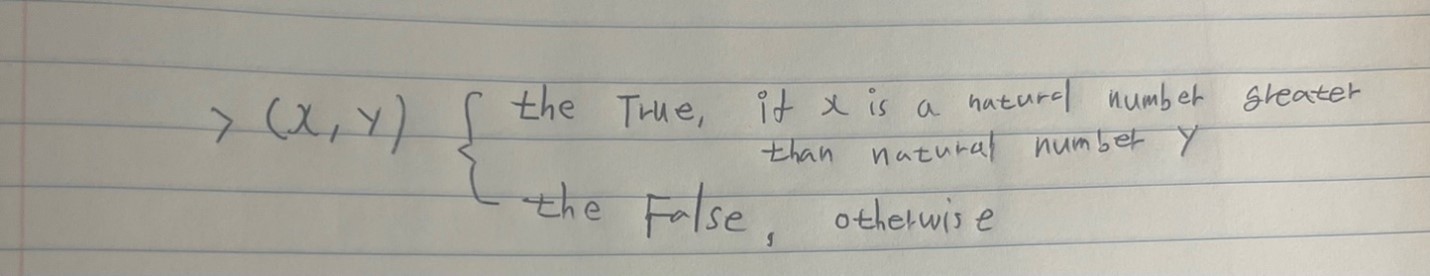 > (x, y) { the True, if x is a natural number greater
than natural number y
the False, otherwise